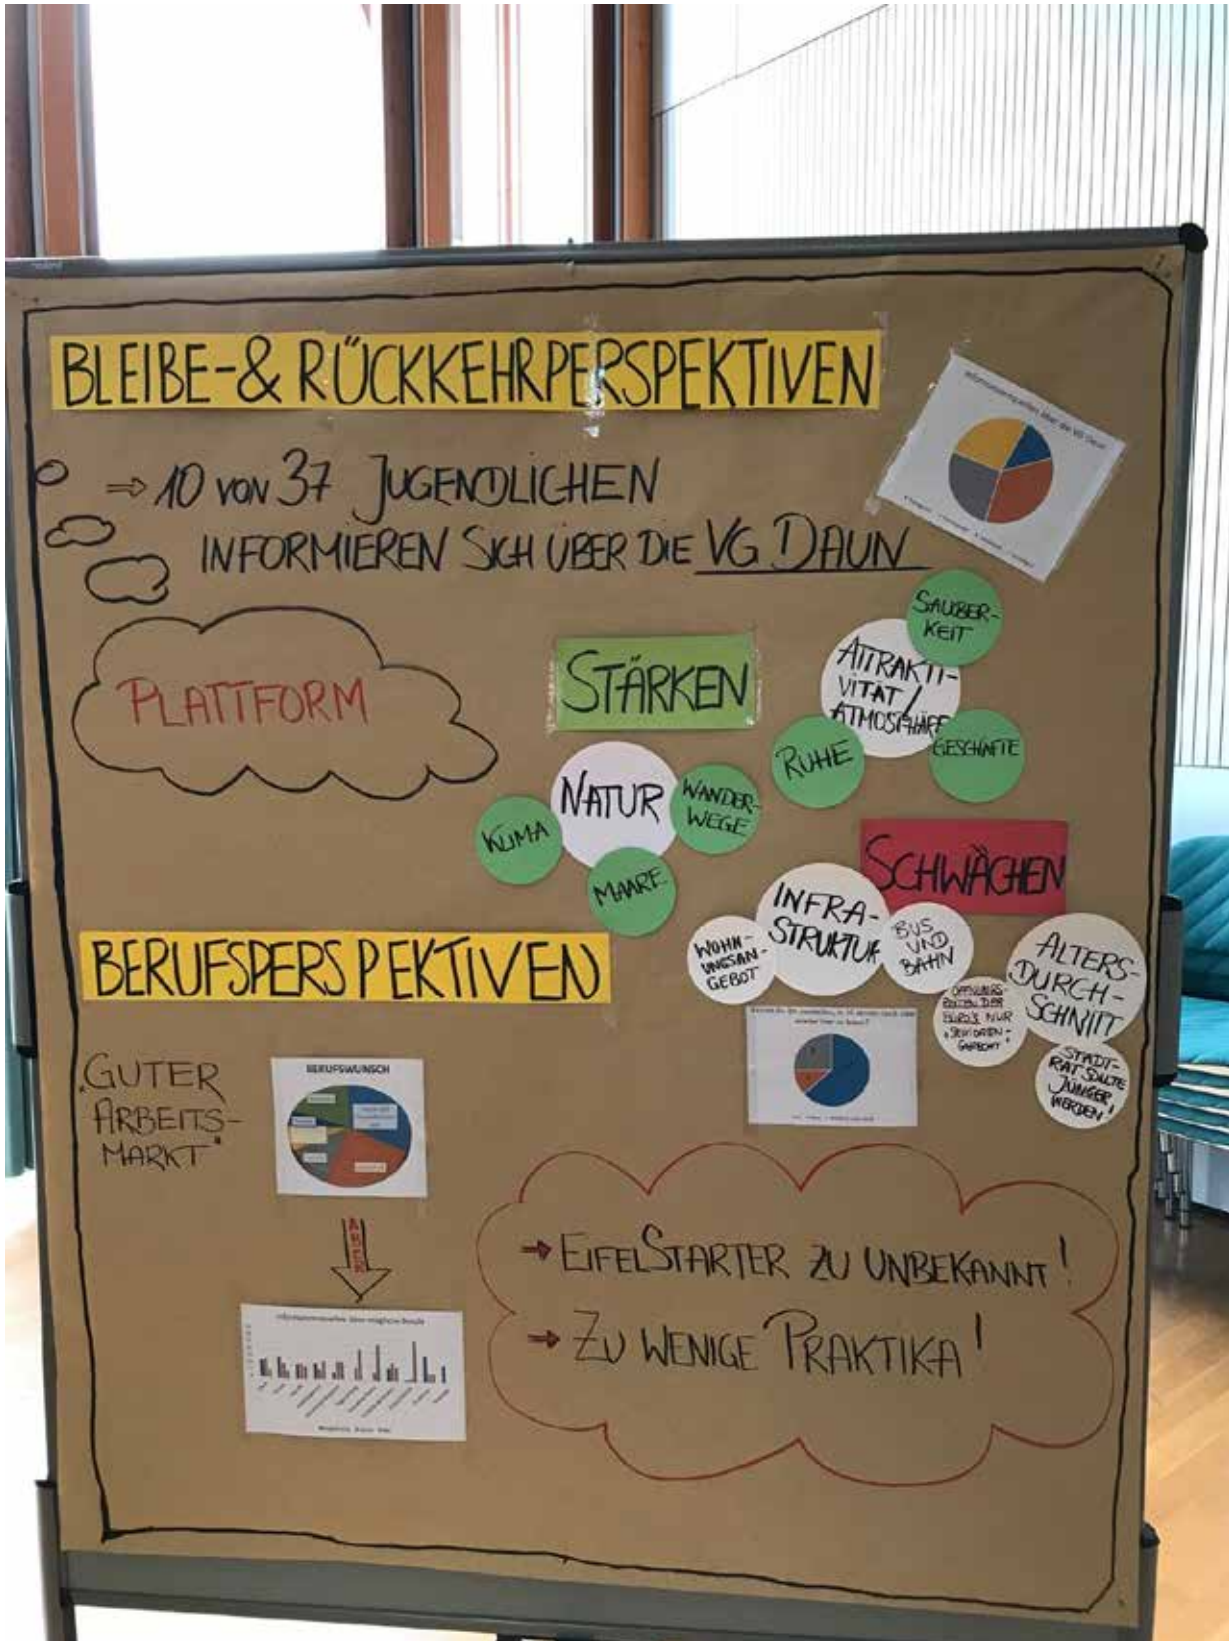 BLEIBE-& RÜCKKEHRPERSPEKTIVEN
Informationsquellen über die VG Daun
⇒ 10 VON 37 JUGENDLICHEN
INFORMIEREN SICH ÜBER DIE VG DAUN
PLATTFORM
STÄRKEN
SAUBER-
KEIT
ATTRAKTI-
VITÄT /
ATMOSPHÄRE
RUHE
GESCHÄFTE
NATUR
WANDER-
WEGE
KLIMA
MAARE
SCHWÄCHEN
INFRA-
STRUKTUR
WOHN-
UNGSAN-
GEBOT
BUS
UND
BAHN
ALTERS-
DURCH-
SCHNITT
ÖFFNUNGS-
ZEITEN DER
BÜRO'S NUR
"SENIOREN-
GERECHT"
STADT-
RAT SOLLTE
JÜNGER
WERDEN!
BERUFSPERSPEKTIVEN
"GUTER
ARBEITS-
MARKT"
BERUFSWUNSCH
ABER
Informationsquellen über mögliche Berufe
→ EIFELSTARTER ZU UNBEKANNT!
→ ZU WENIGE PRAKTIKA!